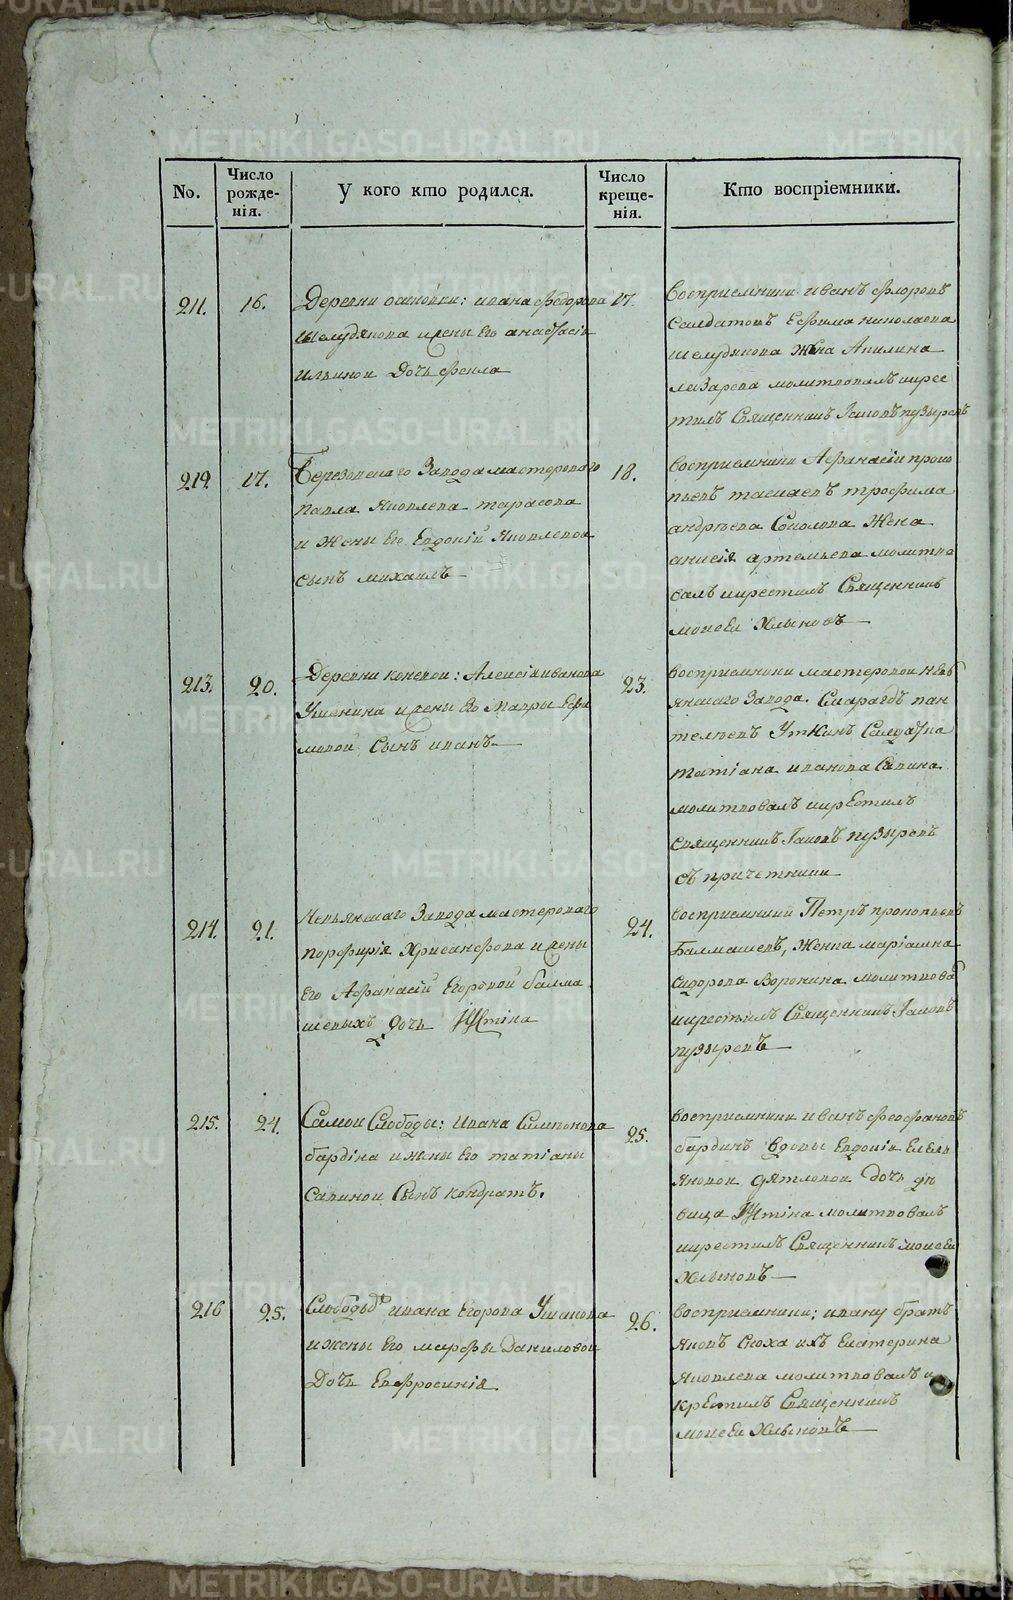 No.
Число рожде-нія.
У кого кто родился.
Число креще-нія.
Кто воспріемники.
211.
16.
Деревни осиповки: ивана федорова
шелудякова ижены Его анастасіи
ильиной Дочь фекла
17.
Восприемники иванъ флоровъ
Салдатовъ Ефима николаева
шелудякова Жена Акилина
лазарева молитвовалъ икрес
тилъ Священникъ Іаковъ пузыревъ
212.
17.
Березовскаго Завода мастероваго
Павла Яковлева тарасова
и Жены Его Евдокіи Яковлевой
сынъ михаилъ
18.
восприемники Афанасіи проко
пьевъ трофима
андреева Соколова Жена
анисія артемьева молитво
валъ икрестилъ Священникъ
моисеи Хлыновъ
213.
20.
Деревни коневои: Алексія иванова
Ушенина ижены Его Мавры Ефи
мовой Сынъ иванъ
23.
восприемники мастеровои невь
янскаго Завода. Смарагдъ пан
телеевъ Уткинъ Салдатка
татіана иванова Савина
молитвовалъ икрестилъ
Священникъ Іаковъ пузыревъ
съ причетники
214.
21.
Невьянскаго Завода мастероваго
порфирія Хрисанфова ижены
Его Афанасіи Егоровой балма
шевыхъ Дочь Иустина
24.
восприемники Петръ прокопьевъ
Балмашевъ, Женка маріамна
Сидорова Воронина молитвова
икрестилъ Священникъ Іаковъ
пузыревъ
215.
24.
Самои Слободы: ивана Симионова
бардина ижены Его татіаны
Савиной Сынъ кондратъ.
25.
восприемники иванъ феофановъ
бардинъ вдовы Евдокіи Емель
Яновои дятловои дочь дѣ
вица Иустина молитвовалъ
икрестилъ Священникъ моисеи
Хлыновъ
216
25.
Слободы ивана Егорова Ушакова
ижены Его марфы Даниловои
Дочь Евфросинія
26.
восприемники: ивану братъ
Яковъ Сноха ихъ Екатерина
Яковлева молитвовалъ и
крестилъ Священникъ
моисеи Хлыновъ
METRIKI.GASO-URAL.RU